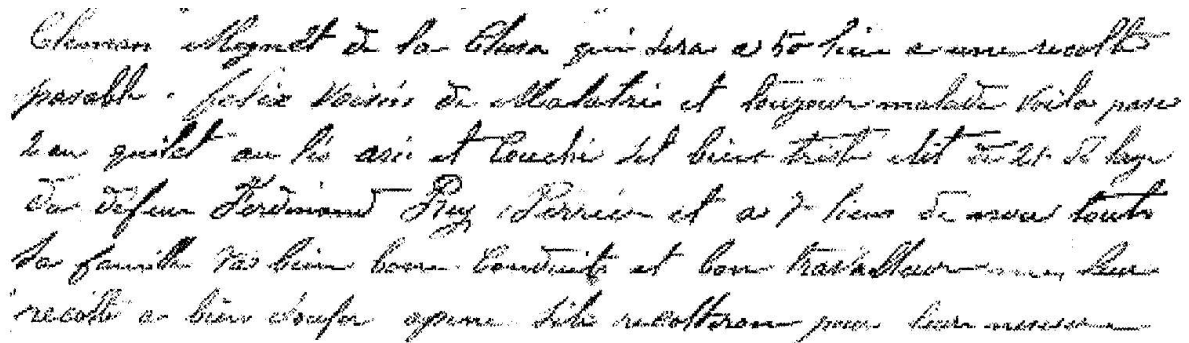 Cleman Mognét de la Chera qui sera a 50 lieu a une recolte
pasable. felix Voisin de Malatrié et toujour malade voila pase
2 an quil et au lis asis et Couchè set bien trist elit de 21. Il
du defeun Ferdinand Rey Perrier et a 7 lieus de nous toute
sa famille vas bien bone Conduite et bon travalleur leur
recolte a bien soufer apene sils recolteron pour leur